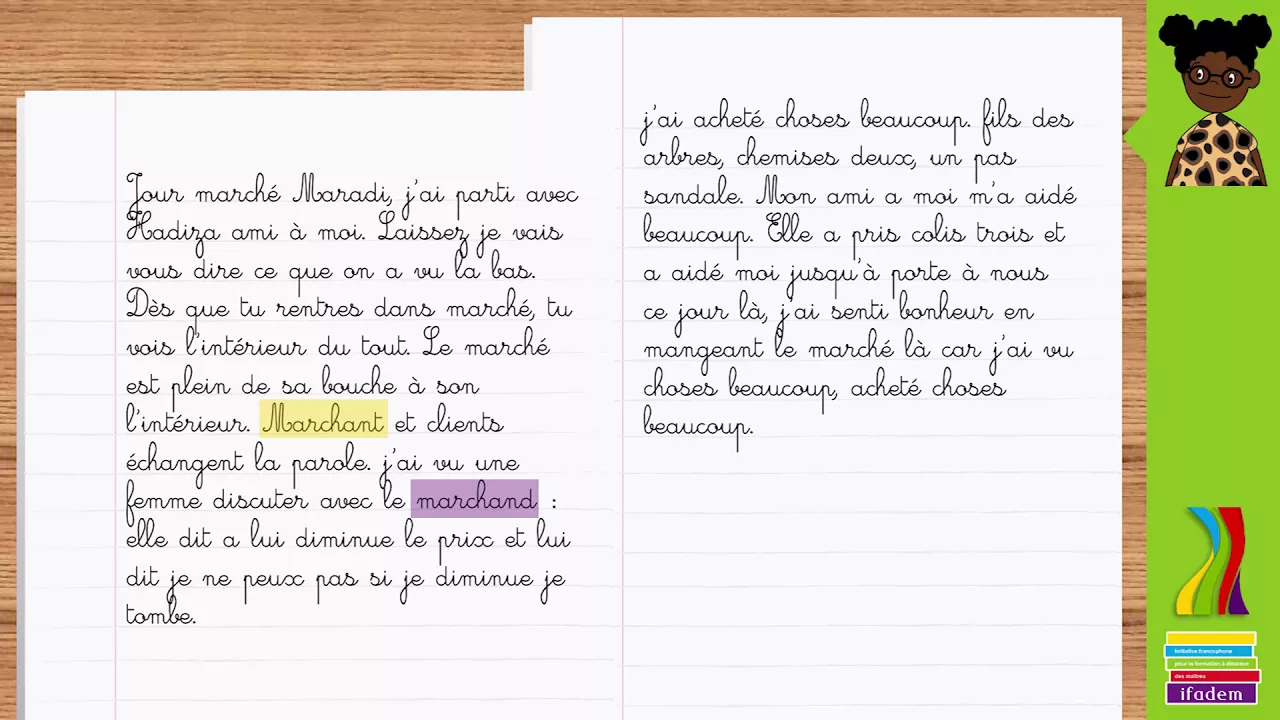 Jour marché Maradi, j'ai parti avec
Hadiza ami à moi. Laissez je vais
vous dire ce que on a vu la bas.
Dès que tu rentres dans marché, tu
vois l'intérieur du tout. Le marché
est plein de sa bouche à son
l'intérieur. Marchant et clients
échangent la parole. j'ai vu une
femme discuter avec le marchand :
elle dit a lui diminue le prix et lui
dit je ne peux pas si je diminue je
tombe.
j'ai acheté choses beaucoup. fils des
arbres, chemises deux, un pas
sandale. Mon ami a moi m'a aidé
beaucoup. Elle a pris colis trois et
a aidé moi jusqu'à porte à nous
ce jour là, j'ai senti bonheur en
mangeant le marché là car j'ai vu
choses beaucoup, acheté choses
beaucoup.
Initiative francophone
pour la formation à distance
des maîtres
ifadem